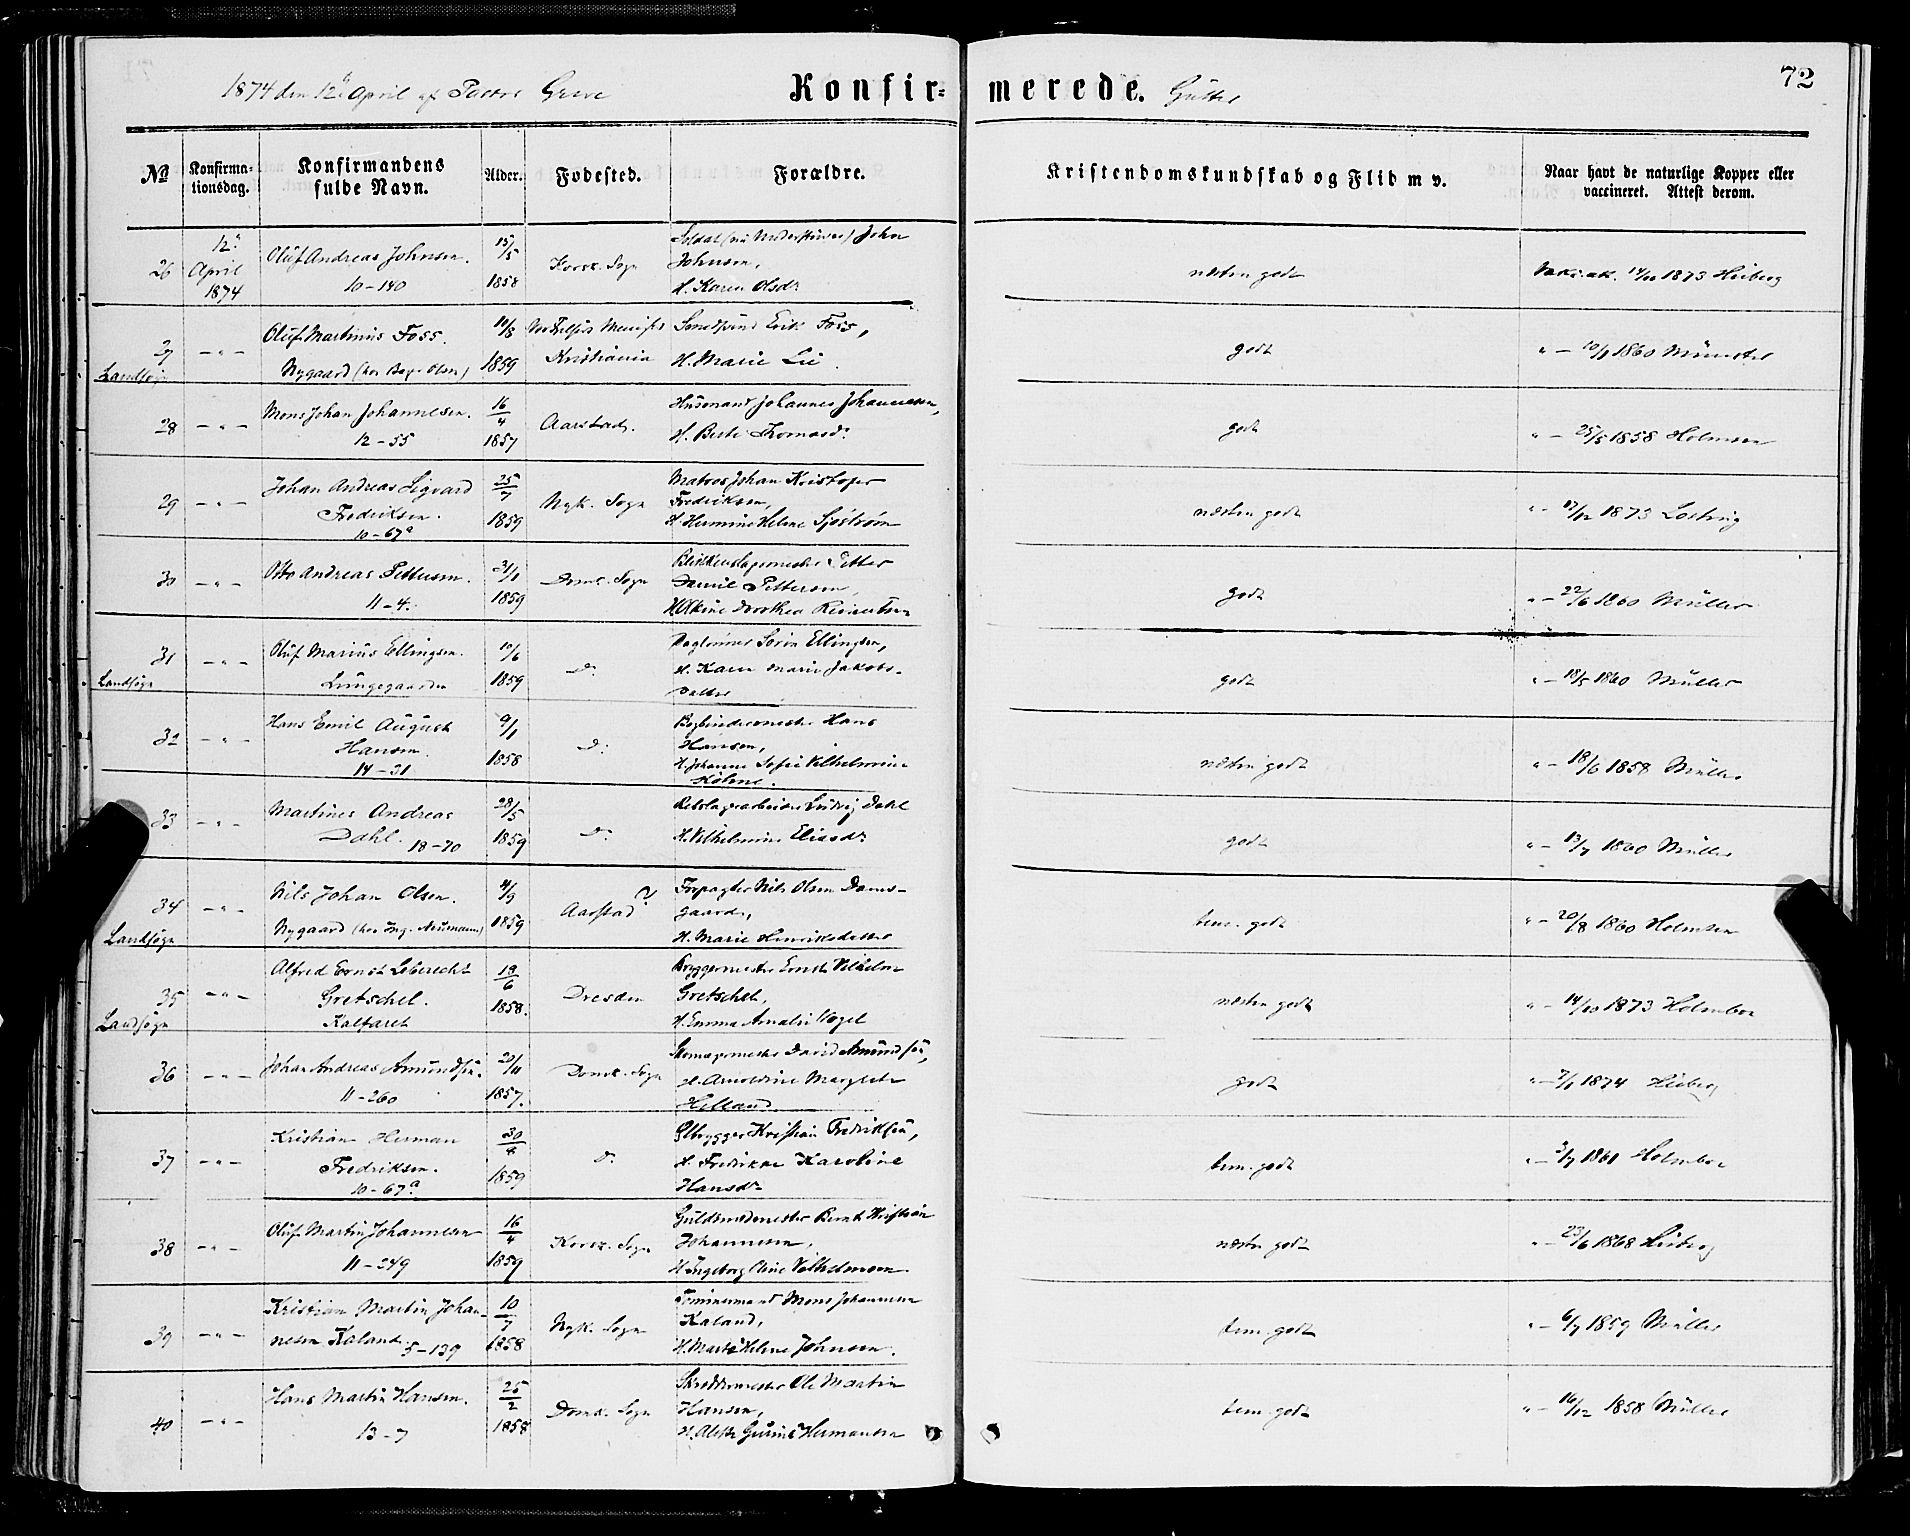 1874 den 12te April af Pastor Greve
Konfir-
merede.
Gutter
72
№
Konfirma-
tionsdag.
Konfirmandens
fulde Navn.
Alder.
Fødested.
Forældre.
Kristendomskundskab og Flid m v.
Naar havt de naturlige Kopper eller
vaccineret. Attest derom.
26
12te
April
1874
Oluf Andreas Johnsen.
10-140
15/5
1858
Korsk. Sogn
Soldat John
Johnsen,
H. Karen Olsdr
næsten godt
1873 Heiberg
27
Landsogn
-"-
Oluf Martinus Foss.
Nygaard
10/8
1859
Kristiania
Erik Foss,
H. Marie Lie
godt
" - 1860 Münster
28
-"-
Mons Johan Johannesen.
12-55
16/4
1857
Aarstad.
Husmand Johannes Johannesen,
H. Berte Thomasdr
godt
" - 25/5 1858 Holmsen
29
-"-
Johan Andreas Sigvard
Fredriksen.
10-67a
25/7
1859
Nyk. Sogn
Matros Johan Kristofer
Fredriksen,
H. Hermine Helene Sjöström
næsten godt
" - 17/12 1873
30
-"-
Otto Andreas Pettersen.
11-4.
31/1
1859
Domk. Sogn
Blikkenslagermester Petter
Daniel Pettersen,
godt
" - 22/6 1860 Müller
31
Landsogn
-"-
Oluf Marius Ellingsen.
Lungegaarden
10/6
1859
Do
Søren Ellingsen,
H. Karen Marie Jakobs-
datter
godt
" - 18/5 1860 Müller
32
-"-
Hans Emil August
Hansen.
14-31
9/1
1858
Do
Bogbindermester Hans
Hansen,
H. Johanne Sofie Vilhelmine
næsten godt
" - 18/6 1858 Müller
33
-"-
Martines Andreas
Dahl. 18-70
28/5
1859
Do
Rebslagerarbeider Ludvig Dahl
H. Vilhelmine Eliasdr
godt
" - 13/7 1860 Müller
34
Landsogn
-"-
Nils Johan Olsen.
Nygaard (hos Ing. Neumann)
4/9
1859
Aarstad ?
Forpagter Nils Olsen Dams-
gaard,
H. Marie Henriksdatter
tem. godt
" - 20/8 1860 Holmsen
35
Landsogn
-"-
Alfred Ernst Leberecht
Gretschel.
Kalfaret
19/6
1858.
Dresden
Bryggermester Ernst Vilhelm
Gretschel,
H. Emma Amalie Vogel
næsten godt
" - 14/10 1873 Holmboe
36
-"-
Johan Andreas Amundsen.
11-260
20/11
1857.
Domk. Sogn
Skomagermester David Amundsen,
H. Arnoldine Margrete
Helland
godt
" - 7/1 1874 Heiberg
37
-"-
Kristian Herman
Fredriksen.
10-67a
30/4
1859
Do
Ølbrygger Kristian Fredriksen,
H. Fredrikke Karoline
Hansdr
tem. godt
" - 3/7 1861 Holmboe
38
-"-
Oluf Martin Johannesen
11-249
16/4
1859
Korsk. Sogn
Guldsmedmester Bernt Kristian
Johannesen,
H. Ingeborg Oline Vilhelmsen
næsten godt
" - 23/6 1868 Heiberg
39
-"-
Kristian Martin Johan-
nesen Kaland. 5-139
10/7
1858
Nyk. Sogn
Tømmermand Mons Johannesen
Kaland,
H. Marte Helene Johnsen.
tem. godt
" - 6/7 1859 Müller
40
-"-
Hans Martin Hansen.
13-7
25/2
1858
Domk. Sogn
Skreddermester Ole Martin
Hansen,
Hermansen
tem. godt
" - 16/12 1858 Müller